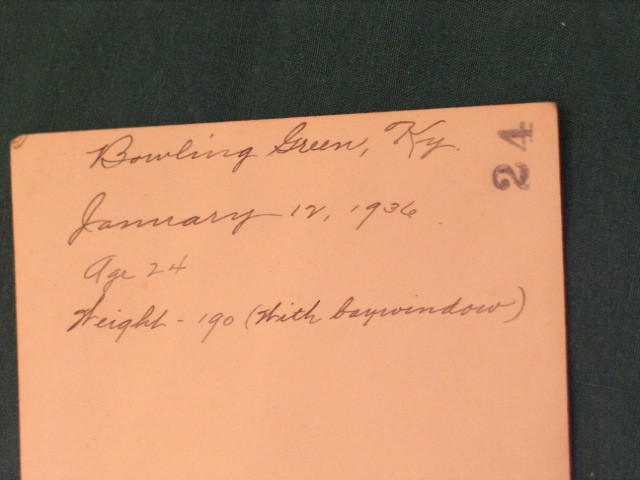 Bowling Green, Ky.
24
January 12, 1936
Age 24
Weight - 190 (With baywindow)